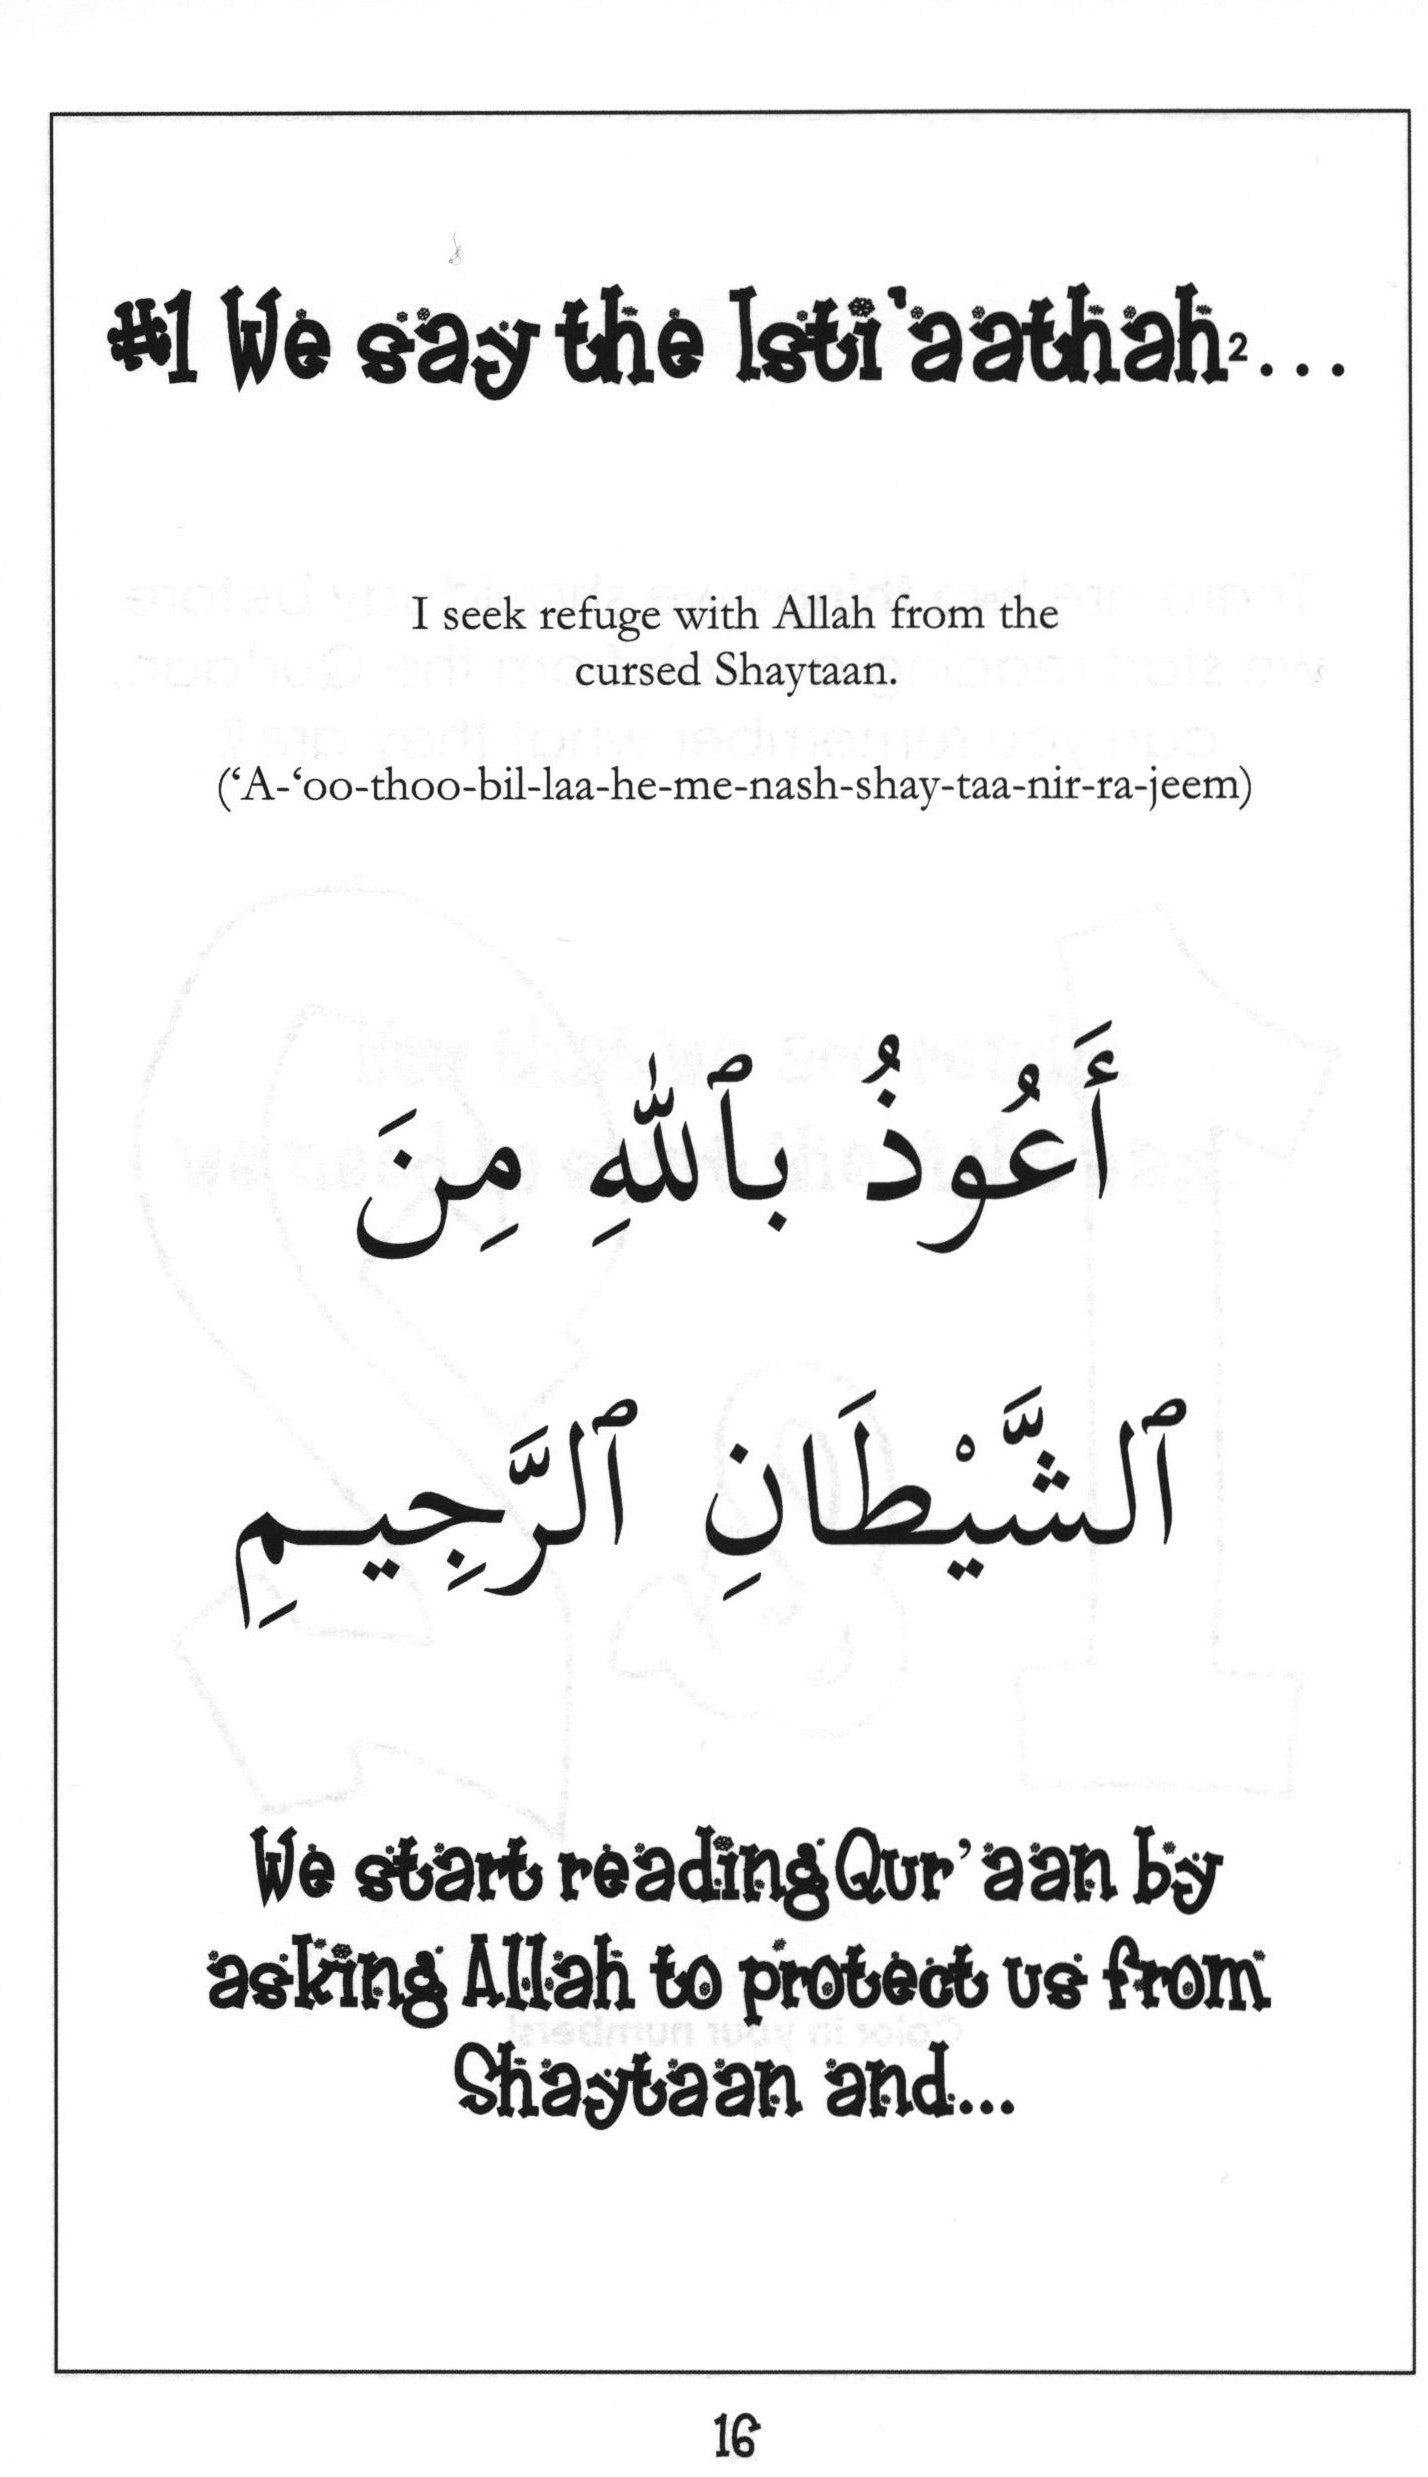 #1 We say the Isti'aathah2...
I seek refuge with Allah from the
cursed Shaytaan.
(‘A-‘oo-thoo-bil-laa-he-me-nash-shay-taa-nir-ra-jeem)
أَعُوذُ بِٱللَّهِ مِنَ
ٱلشَّيْطَانِ ٱلرَّجِيمِ
We start reading Qur’aan by
asking Allah to protect us from
Shaytaan and...
16